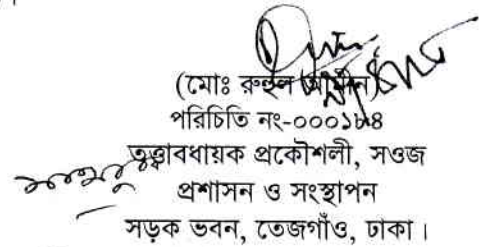 (মোঃ রুহুল আমীন)
পরিচিতি নং-০০০১৮৪
তত্ত্বাবধায়ক প্রকৌশলী, সওজ
প্রশাসন ও সংস্থাপন
সড়ক ভবন, তেজগাঁও, ঢাকা।